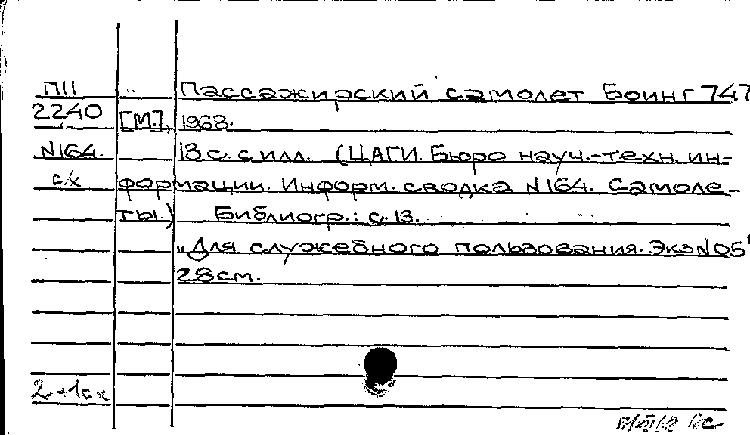 ПII Пассажирский самолет Боинг 747
2240 [М.], 1968.
N164. 13 с. с илл. (ЦАГИ. Бюро науч.-техн. ин-
с.х формации. Информ. сводка N164. Самоле-
ты.) Библиогр.: с. 13.
„Для служебного пользования. Экз N05"
28 см.